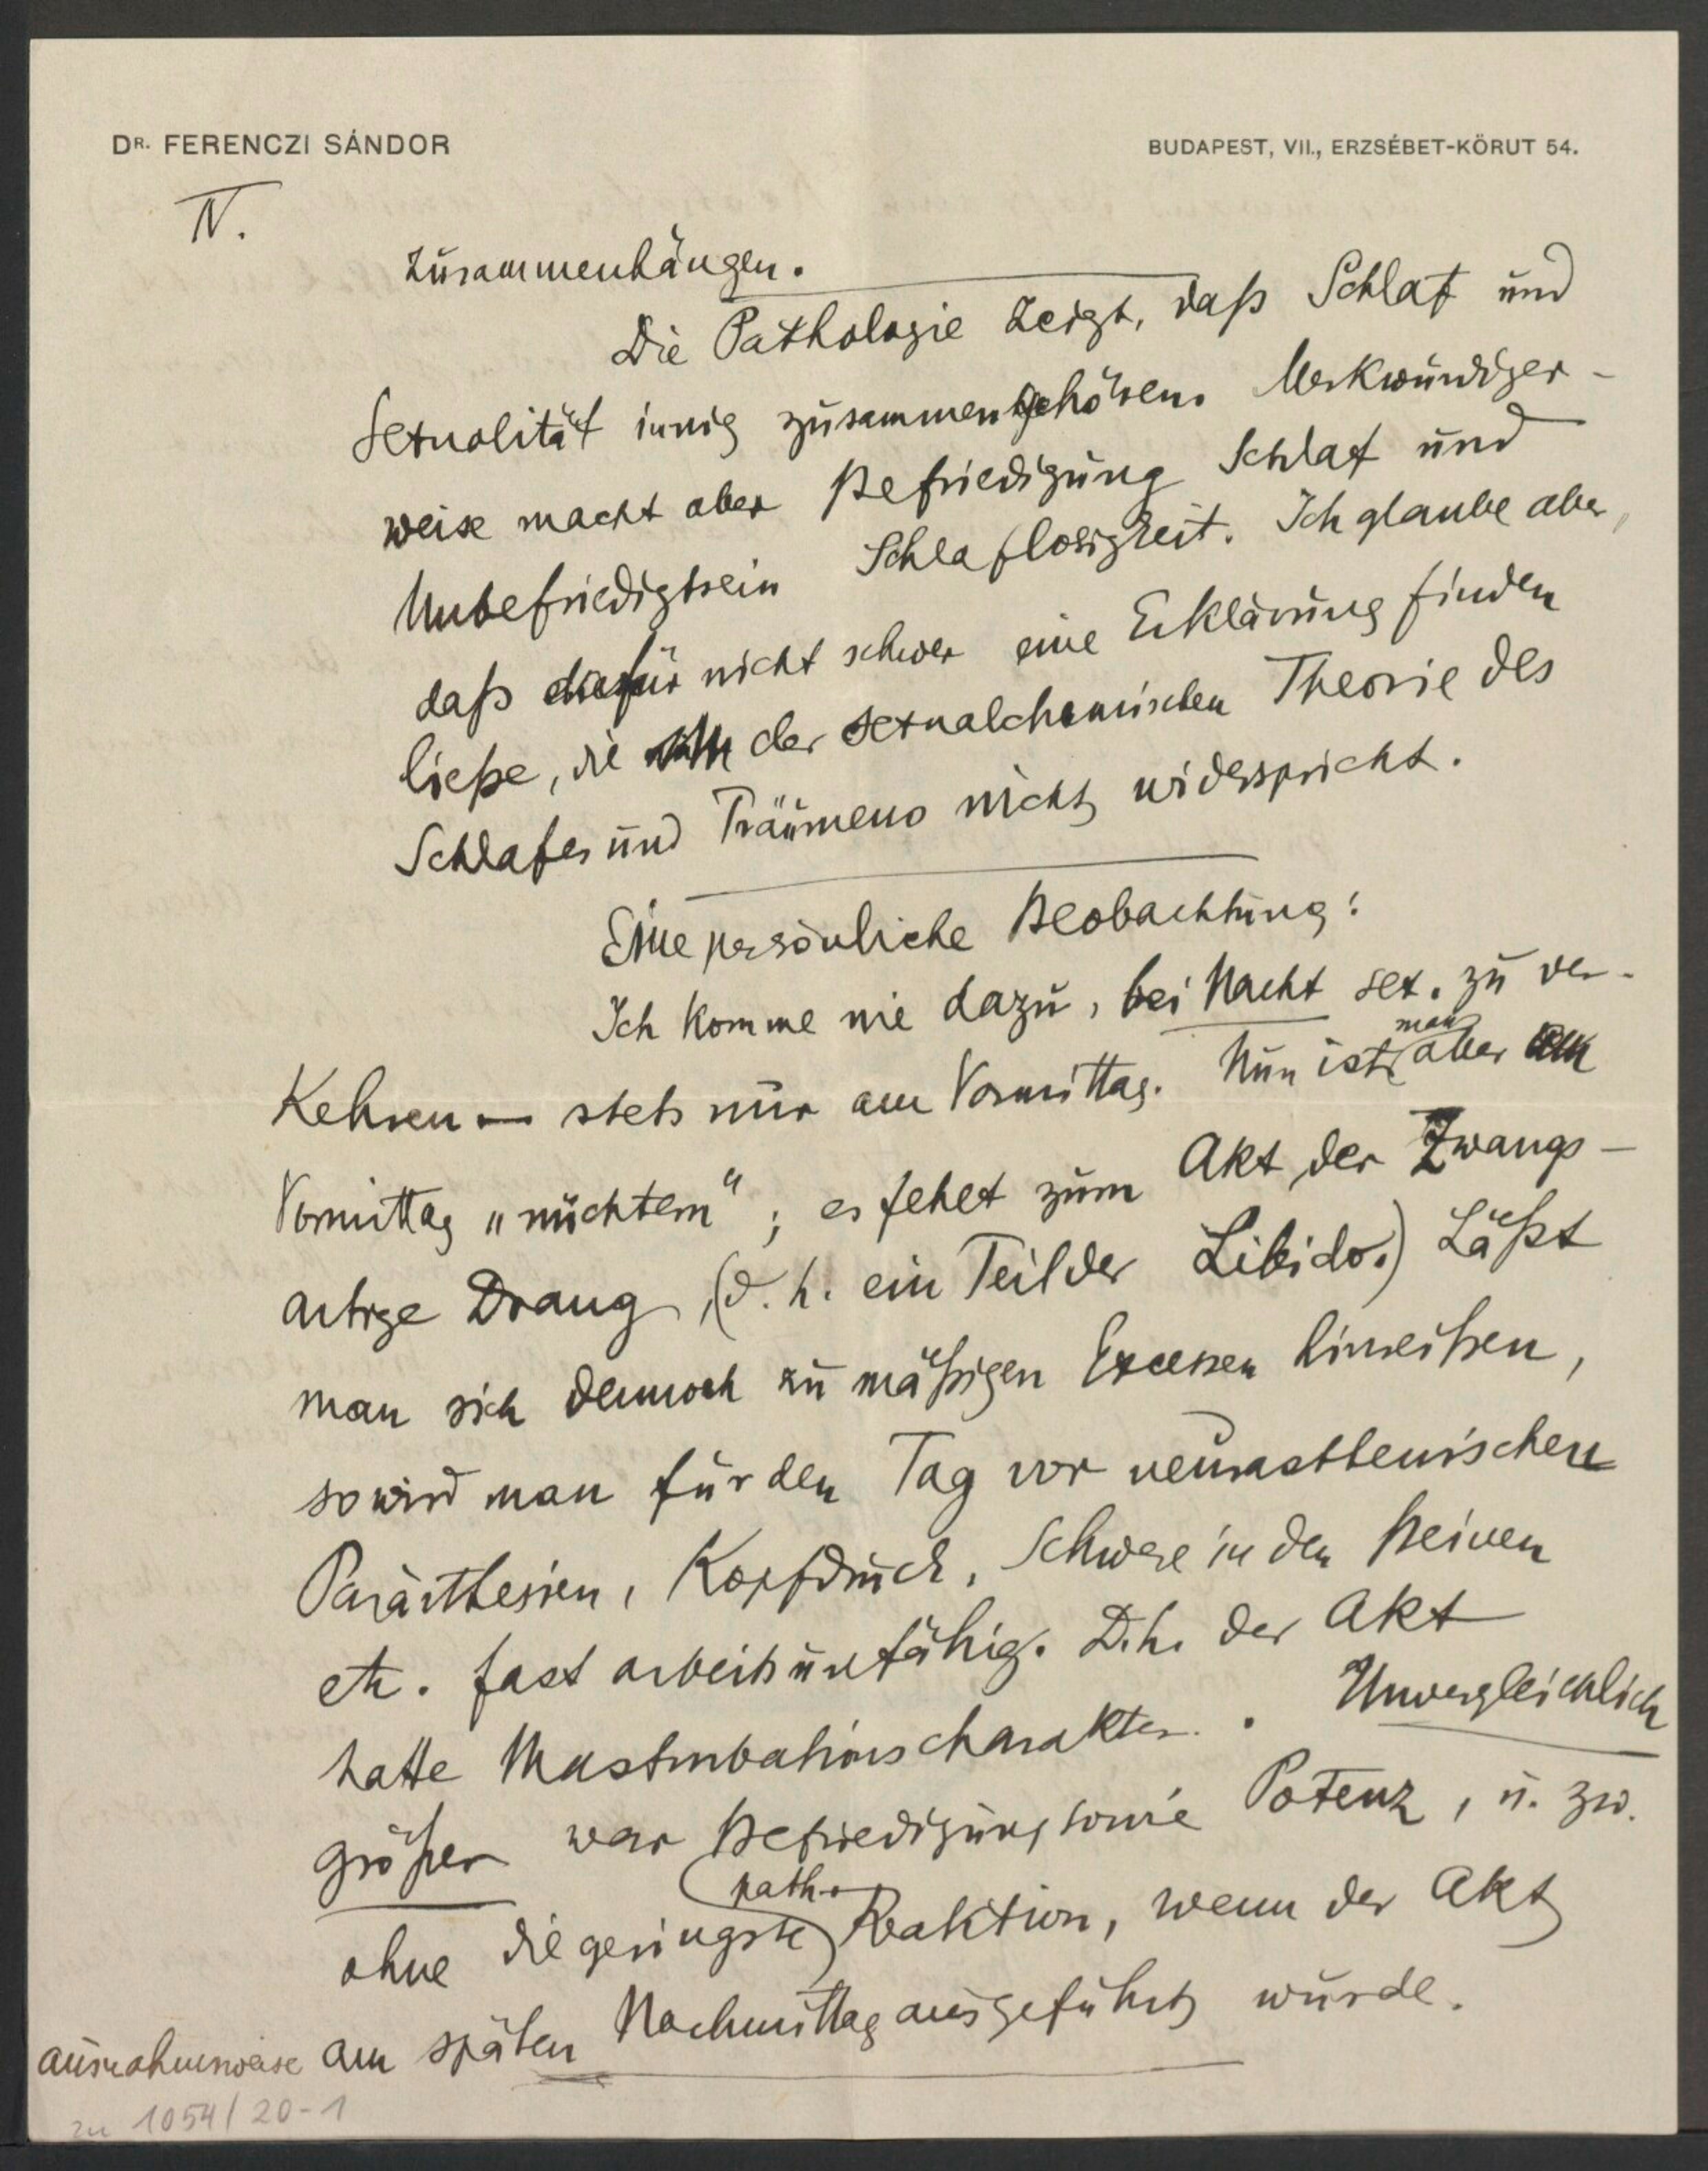 DR. FERENCZI SÁNDOR
BUDAPEST, VII., ERZSÉBET-KÖRUT 54.
IV.
zusammenhängen.
Die Pathologie zeigt, daß Schlaf und
Sexualität innig zusammengehören. Merkwürdiger-
weise macht aber Befriedigung Schlaf und
Unbefriedigtsein Schlaflosigkeit. Ich glaube aber,
daß dafür nicht schwer eine Erklärung finden
ließe, die der sexualchemischen Theorie des
Schlafes und Träumens nicht widerspricht.
Eine persönliche Beobachtung:
Ich komme nie dazu, bei Nacht sex. zu ver-
kehren — stets nur am Vormittag. Nun ist man aber am
Vormittag „nüchtern“; es fehlt zum Akt der Zwangs-
artige Drang, (d. h. ein Teil der Libido.) Läßt
man sich dennoch zu mäßigen Excessen hinreißen,
so wird man für den Tag vor neurasthenischen
Parästhesien, Kopfdruck, Schwere in den Beinen
etc. fast arbeitsunfähig. D.h. der Akt
hatte Masturbationscharakter. Unvergleichlich
größer war Befriedigung sowie Potenz, u. zw.
ohne die geringste path. Reaktion, wenn der Akt
ausnahmsweise am späten Nachmittag ausgeführt wurde.
zu 1054/20-1